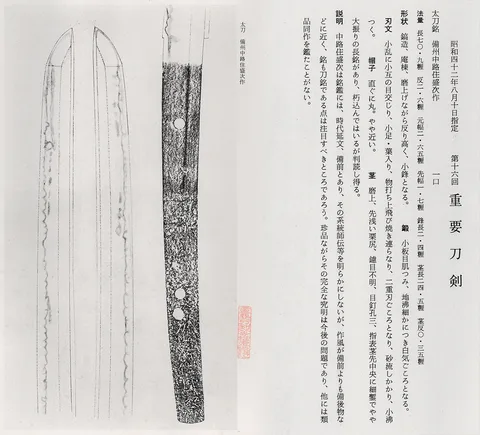 昭和四十二年八月十日指定　第十六回 重要刀剣
太刀銘　備州中路住盛次作　一口
法量　長七〇・九糎　反二・六糎　元幅二・六五糎　先幅一・七糎　鋒長二・四糎　茎長二四・五糎　茎反〇・三五糎
形状　鎬造、庵棟　磨上げながら反り高く、小鋒となる。　鍛　小板目肌つみ、地沸細かにつき白気ごころとなる。
刃文　小乱に小互の目交じり、小足・葉入り、物打ち上飛び焼き連らなり、二重刃ごころとなり、砂流しかかり、小沸
つく。　帽子　直ぐに丸。やや近い。　茎　磨上、先浅い栗尻、鑢目不明、目釘孔三、指表茎先中央に細鏨でやや
大振りの長銘があり、朽込んではいるが判読し得る。
説明　中路住盛次は銘鑑には、時代延文、備前とあり、その系統師伝等を明らかにしないが、作風が備前よりも備後物な
どに近く、銘も刀銘である点は注目すべきところであろう。珍品ながらその完全な究明は今後の問題であり、他には類
品同作を鑑たことがない。
太刀　備州中路住盛次作